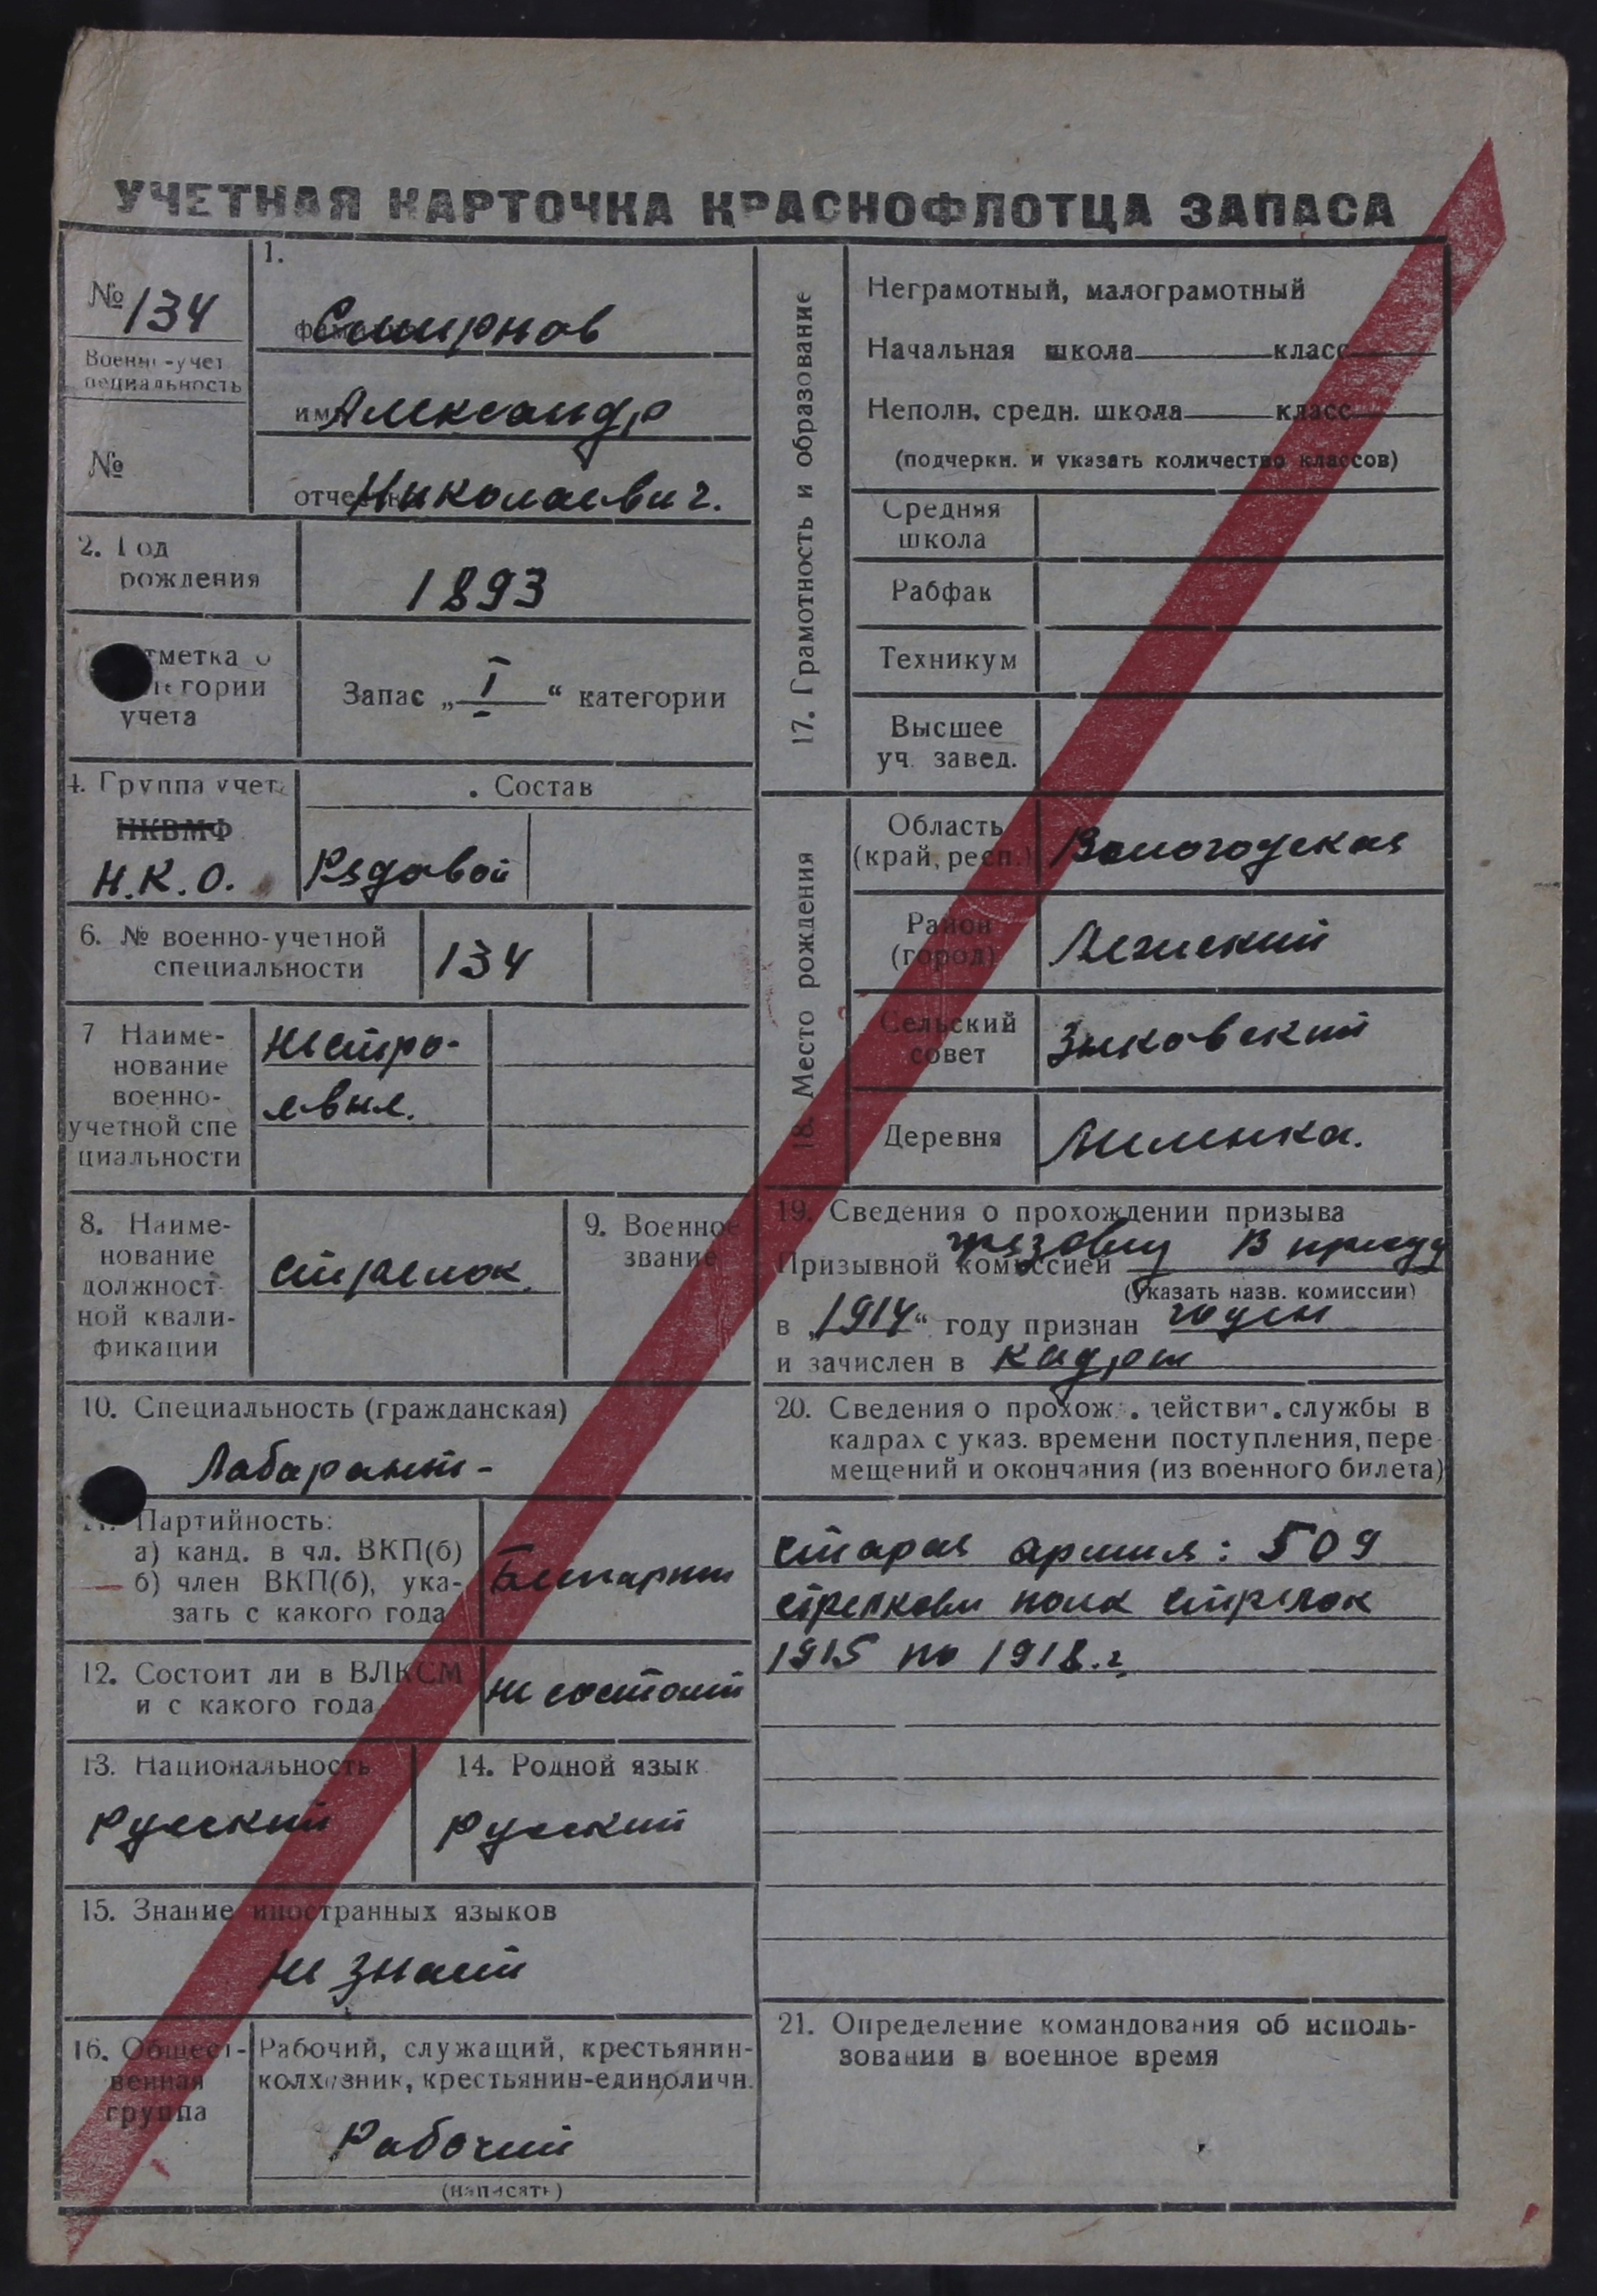 УЧЕТНАЯ КАРТОЧКА КРАСНОФЛОТЦА ЗАПАСА
№ 134
Военно-учет
пециальность
№
1.
Смирнов
имя Александр
отчество Николаевич.
2. Год
рождения
1893
тметка о
тегории
учета
Запас „ I “ категории
4. Группа учета
НКВМФ
Н.К.О.
Состав
Рядовой
6. № военно-учетной
специальности
134
7 Наиме-
нование
военно-
учетной спе
циальности
нестро-
евые.
8. Наиме-
нование
должност-
ной квали-
фикации
стрелок.
9. Военное
звание
10. Специальность (гражданская)
Лаборант-
11. Партийность:
а) канд. в чл. ВКП(б)
б) член ВКП(б), ука-
зать с какого года
12. Состоит ли в ВЛКСМ
и с какого года
не состоит
13. Национальность
русский
14. Родной язык
русский
15. Знание иностранных языков
не знает
16. Общест-
венная
группа
Рабочий, служащий, крестьянин-
колхозник, крестьянин-единоличн.
Рабочий
(написать)
17. Грамотность и образование
Неграмотный, малограмотный
Начальная школа класс
Неполн. средн. школа класс
(подчеркн. и указать количество классов)
Средняя
школа
Рабфак
Техникум
Высшее
уч. завед.
18. Место рождения
Область
(край, респ.)
Вологодская
Район
(город)
Лежский
Сельский
совет
Зыковский
Деревня
19. Сведения о прохождении призыва
Призывной комиссией
(указать назв. комиссии)
в „1914“ году признан годен
и зачислен в кадры
20. Сведения о прохож. действит. службы в
кадрах с указ. времени поступления, пере
мещений и окончания (из военного билета)
старая армия: 509
стрелковы полк стрелок
1915 по 1918.г.
21. Определение командования об исполь-
зовании в военное время